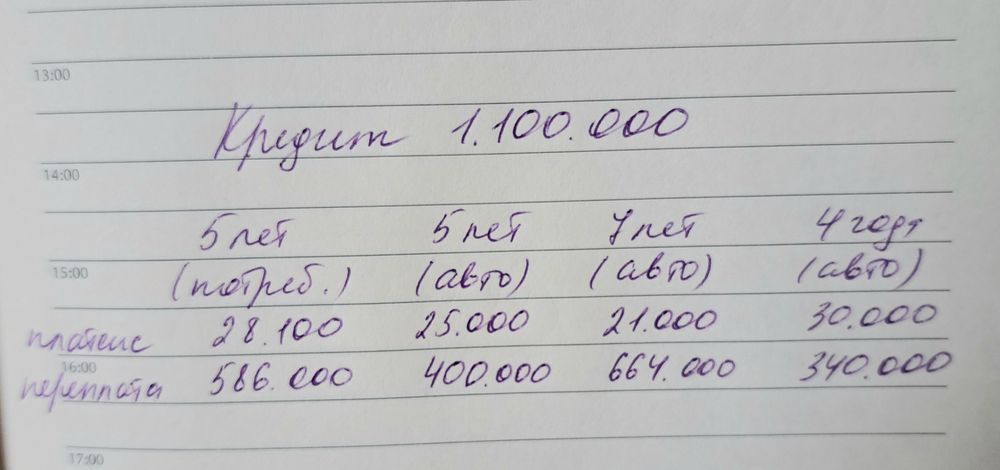 13:00
Кредит 1.100.000
14:00
5 лет 5 лет 7 лет 4 года
15:00
(потреб.) (авто) (авто) (авто)
платеж 28.100 25.000 21.000 30.000
16:00
переплата 586.000 400.000 664.000 340.000
17:00